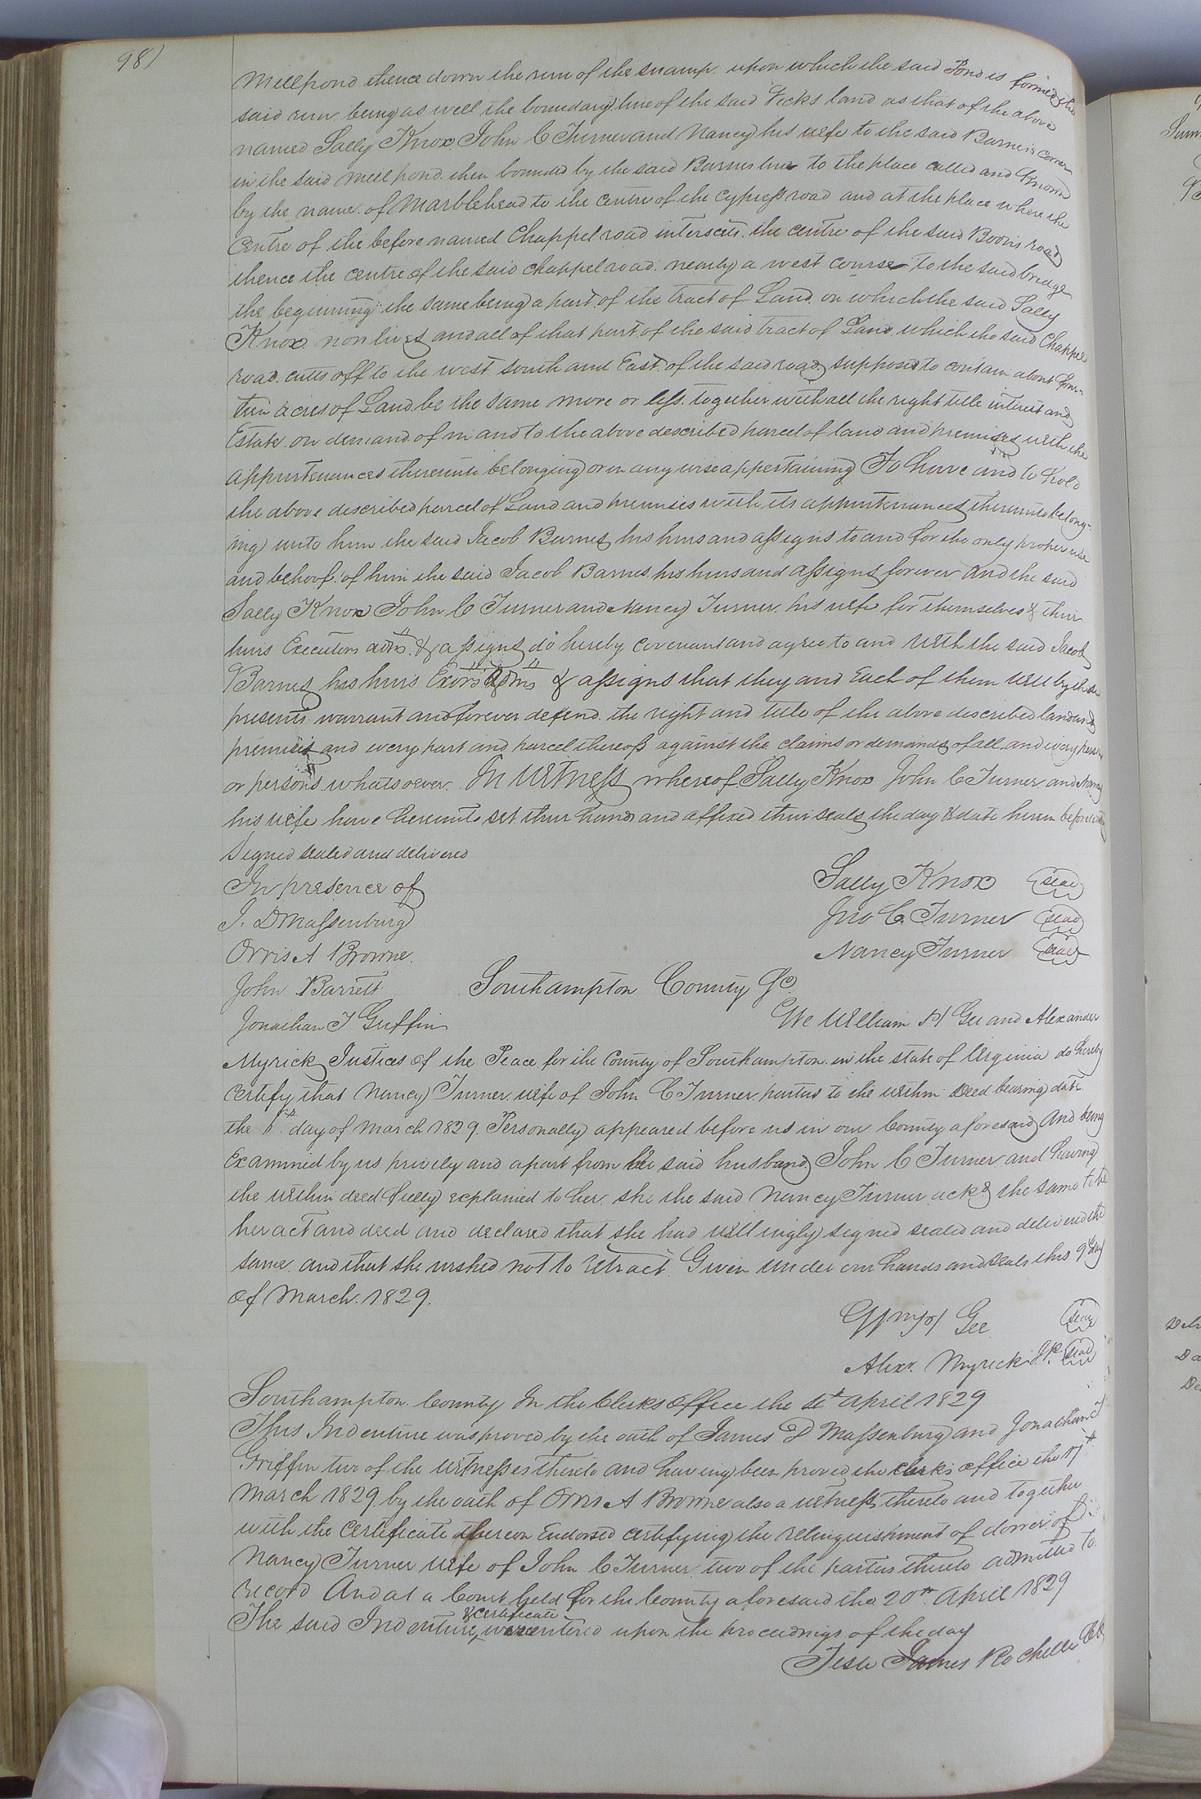 98)
Millpond thence down the run of the swamp upon which the said Pond is formed the
said run being as well the boundary line of the said Ficks land as that of the above
named Sally Knox John C Turner and Nancy his wife to the said Barnes's corner
in the said mill pond. then bounded by the said Barnes line to the place called and Known
by the name of Marblehead to the centre of the cypress road and at the place where the
Centre of the before named Chappel road intersects the centre of the said Boons road
thence the centre of the said chappel road nearly a west course to the said bridge
the beginning the same being a part of the tract of Land on which the said Sally
Knox now lives and all of that part of the said tract of Land which the said Chappel
road cutts off to the west south and East of the said road supposed to contain about
teen acres of Land be the same more or less together with all the right title interest and
Estate or demand of in and to the above described parcel of land and premises with the
appurtenances thereunto belonging or in any wise appertaining To have and to hold
the above described parcel of Land and premises with its appurtenances thereunto belong-
ing unto him the said Jacob Barnes his heirs and assigns to and for the only proper use
and behoof of him the said Jacob Barnes his heirs and assigns forever And the said
Sally Knox John C Turner and Nancy Turner his wife for themselves & their
heirs Executors adms. & assigns do hereby covenant and agree to and with the said Jacob
Barnes his heirs Exors adms & assigns that they and Each of them will by these
presents warrant and forever defend the right and title of the above described land and
premises and every part and parcel thereof against the claims or demands of all and every person
or persons whatsoever. In Witness whereof Sally Knox John C Turner and Nancy
his wife have hereunto set their hands and affixed their seals the day & date herein before
Signed sealed and delivered
In presence of
J. D Massenburg
Orris A Browne.
John Barrett
Jonathan T Griffin
Sally Knox seal
Jno C. Turner seal
Nancy Turner seal
Southampton County Sc.
We William H Gee and Alexander
Myrick Justices of the Peace for the County of Southampton in the state of Virginia do hereby
certify that Nancy Turner wife of John C Turner parties to the within Deed bearing date
the day of March 1829. Personally appeared before us in our County aforesaid And being
Examined by us privily and apart from her said husband John C Turner and having
the within deed fully explained to her she the said Nancy Turner ackd the same to be
her act and deed and declared that she had willingly signed sealed and delivered the
same and that she wished not to retract Given under our hands and seals this 9th day
of March. 1829.
Wm H Gee seal
Alexr. Myrick J.P. seal
Southampton County In the Clerks office the April 1829
This Indenture was proved by the oath of James D Massenburg and Jonathan T
Griffin two of the witnesses thereto and having been proved in the clerks office the 17th
March 1829 by the oath of Orris A Browne also a witness thereto and together
with the Certificate thereon Endorsed certifying the relinquishment of dower of
Nancy Turner wife of John C Turner two of the parties thereto admitted to
record And at a Court held for the County aforesaid the 20th April 1829
The said Indenture & certificate were entered upon the proceedings of the day
Teste James Rochelle CC